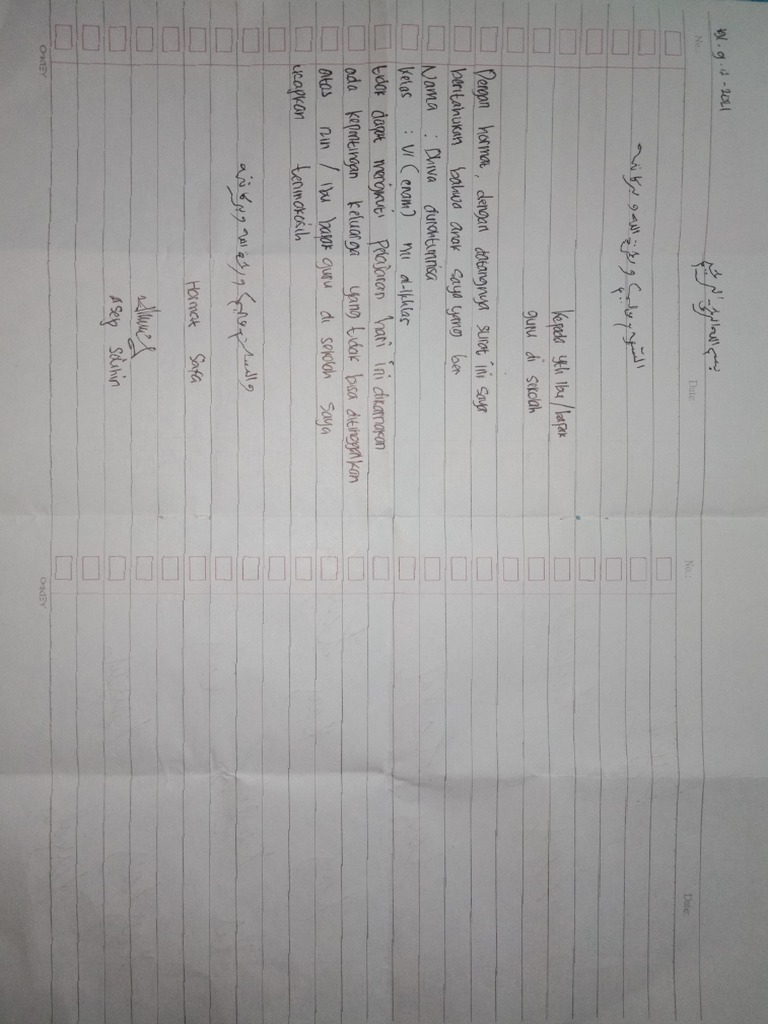 بسم الله الرحمن الرحيم
No.:
Date:
السلام عليكم ورحمة الله وبركاته
Kepada yth ibu/bapak
guru di sekolah
Dengan hormat, dengan datangnya surat ini saya
beritahukan bahwa anak saya yang ber
Nama : Dhiva
Kelas : VI (enam) MI al-Ikhlas
tidak dapat mengikuti pelajaran hari ini dikarnakan
ada kepintingan keluarga yang tidak bisa ditinggalkan
atas izin / ibu bapak guru di sekolah saya
ucapkan terimakasih
والسلام عليكم ورحمة الله وبركاته
Hormat saya
Asep Solihin
OKEY
No.:
Date:
OKEY